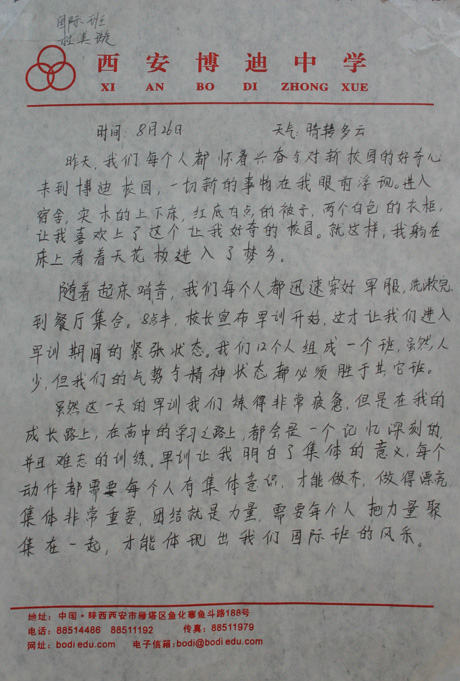 国际班
杜美璇
西安博迪中学
XI AN BO DI ZHONG XUE
时间：8月26日 天气：晴转多云
昨天，我们每个人都怀着兴奋与对新校园的好奇心
来到博迪校园，一切新的事物在我眼前浮现。进入
宿舍，实木的上下床，红底白点的被子，两个白色的衣柜，
让我喜欢上了这个让我好奇的校园。就这样，我躺在
床上看着天花板进入了梦乡。
随着起床哨音，我们每个人都迅速穿好军服，洗漱完
到餐厅集合。8点半，校长宣布军训开始，这才让我们进入
军训期间的紧张状态。我们12个人组成一个班，虽然人
少，但我们的气势与精神状态都必须胜于其它班。
虽然这一天的军训我们练得非常疲惫，但是在我的
成长路上，在高中的学习之路上，都会是一个记忆深刻的，
并且难忘的训练。军训让我明白了集体的意义，每个
动作都需要每个人有集体意识，才能做齐，做得漂亮
集体非常重要，团结就是力量，需要每个人把力量聚
集在一起，才能体现出我们国际班的风采。
地址：中国·陕西西安市雁塔区鱼化寨鱼斗路188号
电话：88514486 88511192 传真：88511979
网址：bodiedu.com 电子信箱：bodi@bodiedu.com